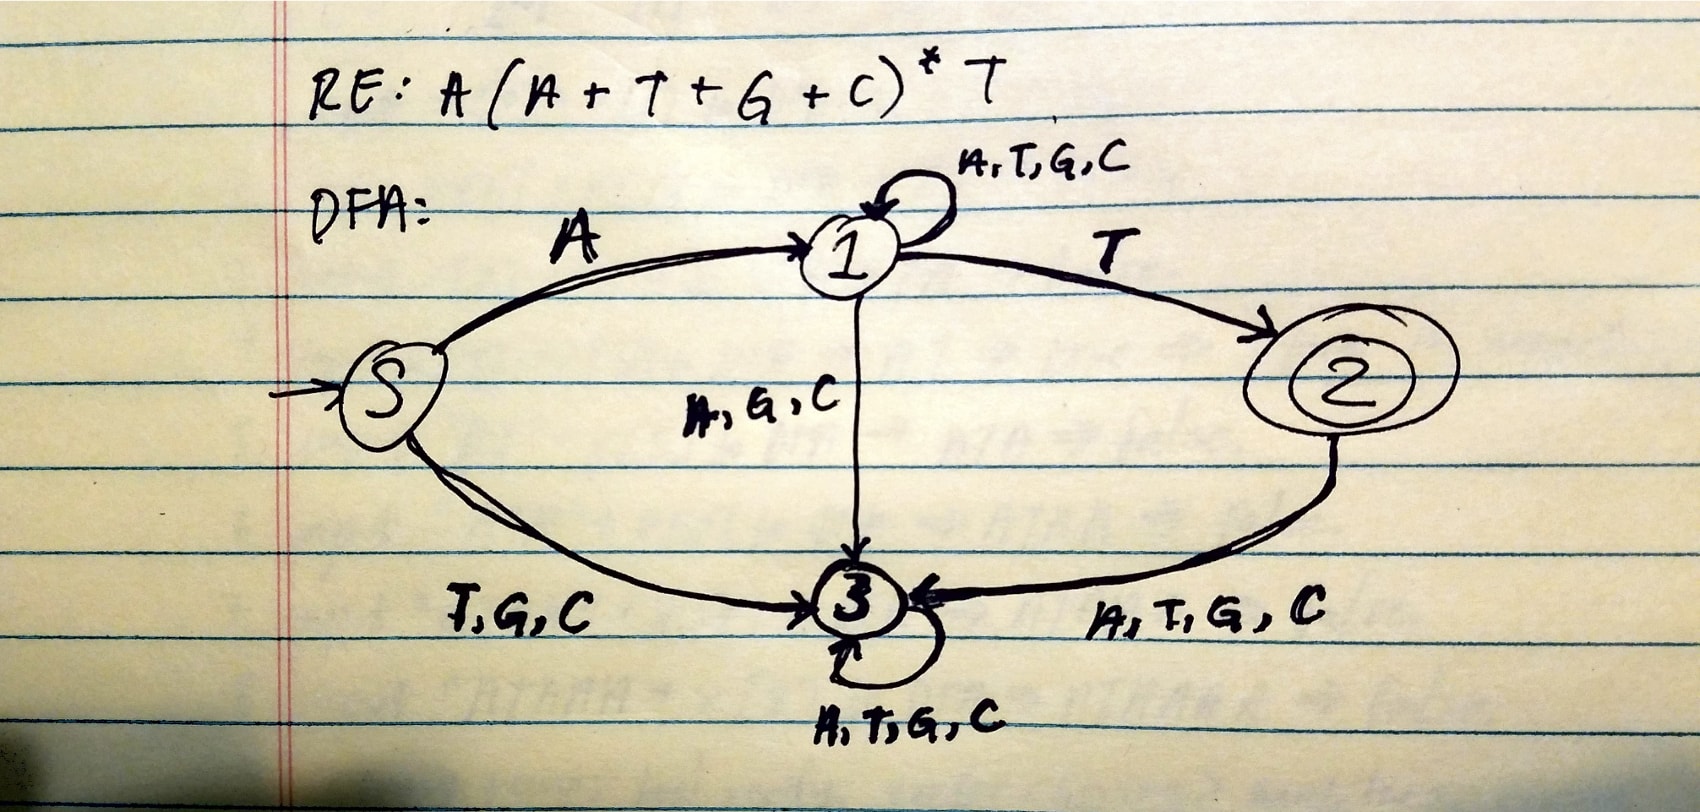 RE: A(A+T+G+C)* T
DFA:
A
A,T,G,C
1
T
S
A,G,C
2
T,G,C
3
A,T,G,C
A,T,G,C